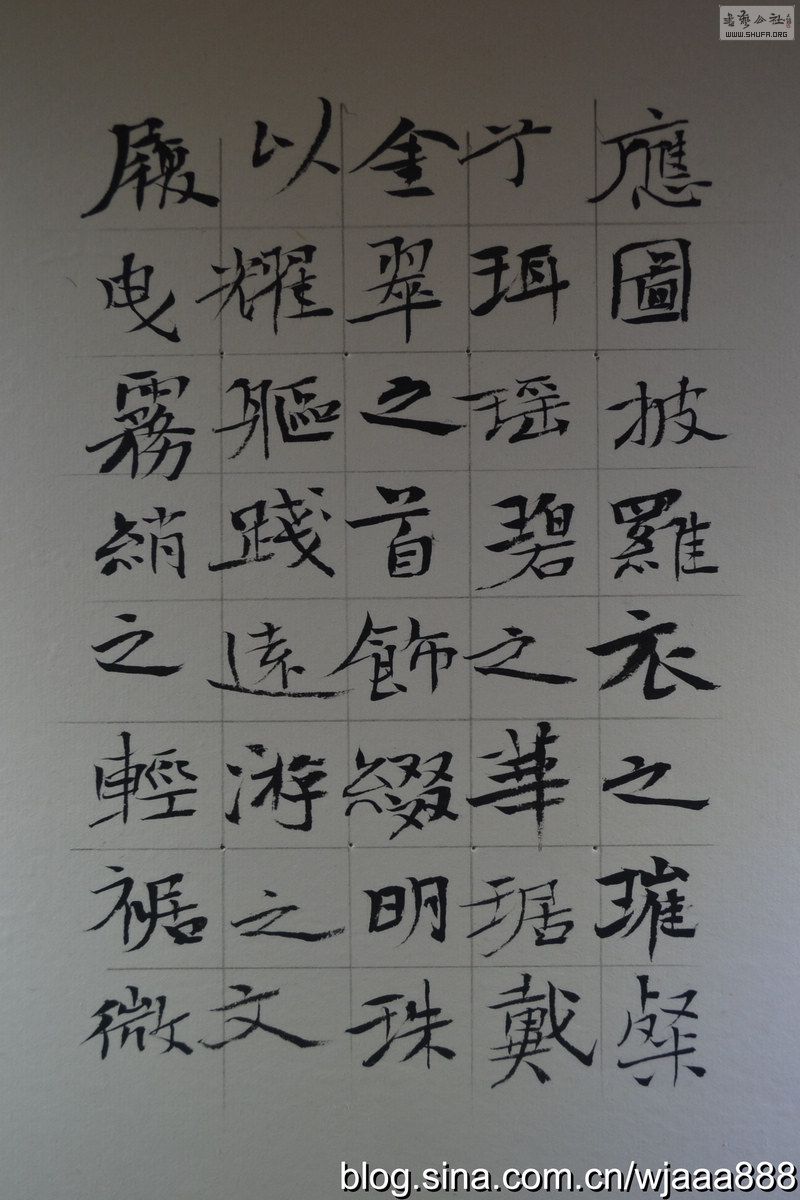 應圖披羅衣之璀粲
兮珥瑶碧之華琚戴
金翠之首飾綴明珠
以耀軀踐遠游之文
履曳霧綃之輕裾微
書藝公社
WWW.SHUFA.ORG
blog.sina.com.cn/wjaaa888